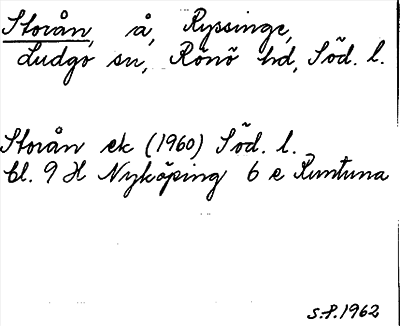 Storån, å, Ryssinge,
Ludgo sn, Rönö hd, Söd. l.
Storån ek (1960) Söd. l.
bl. 9 H Nyköping 6 e Runtuna
S.P. 1962